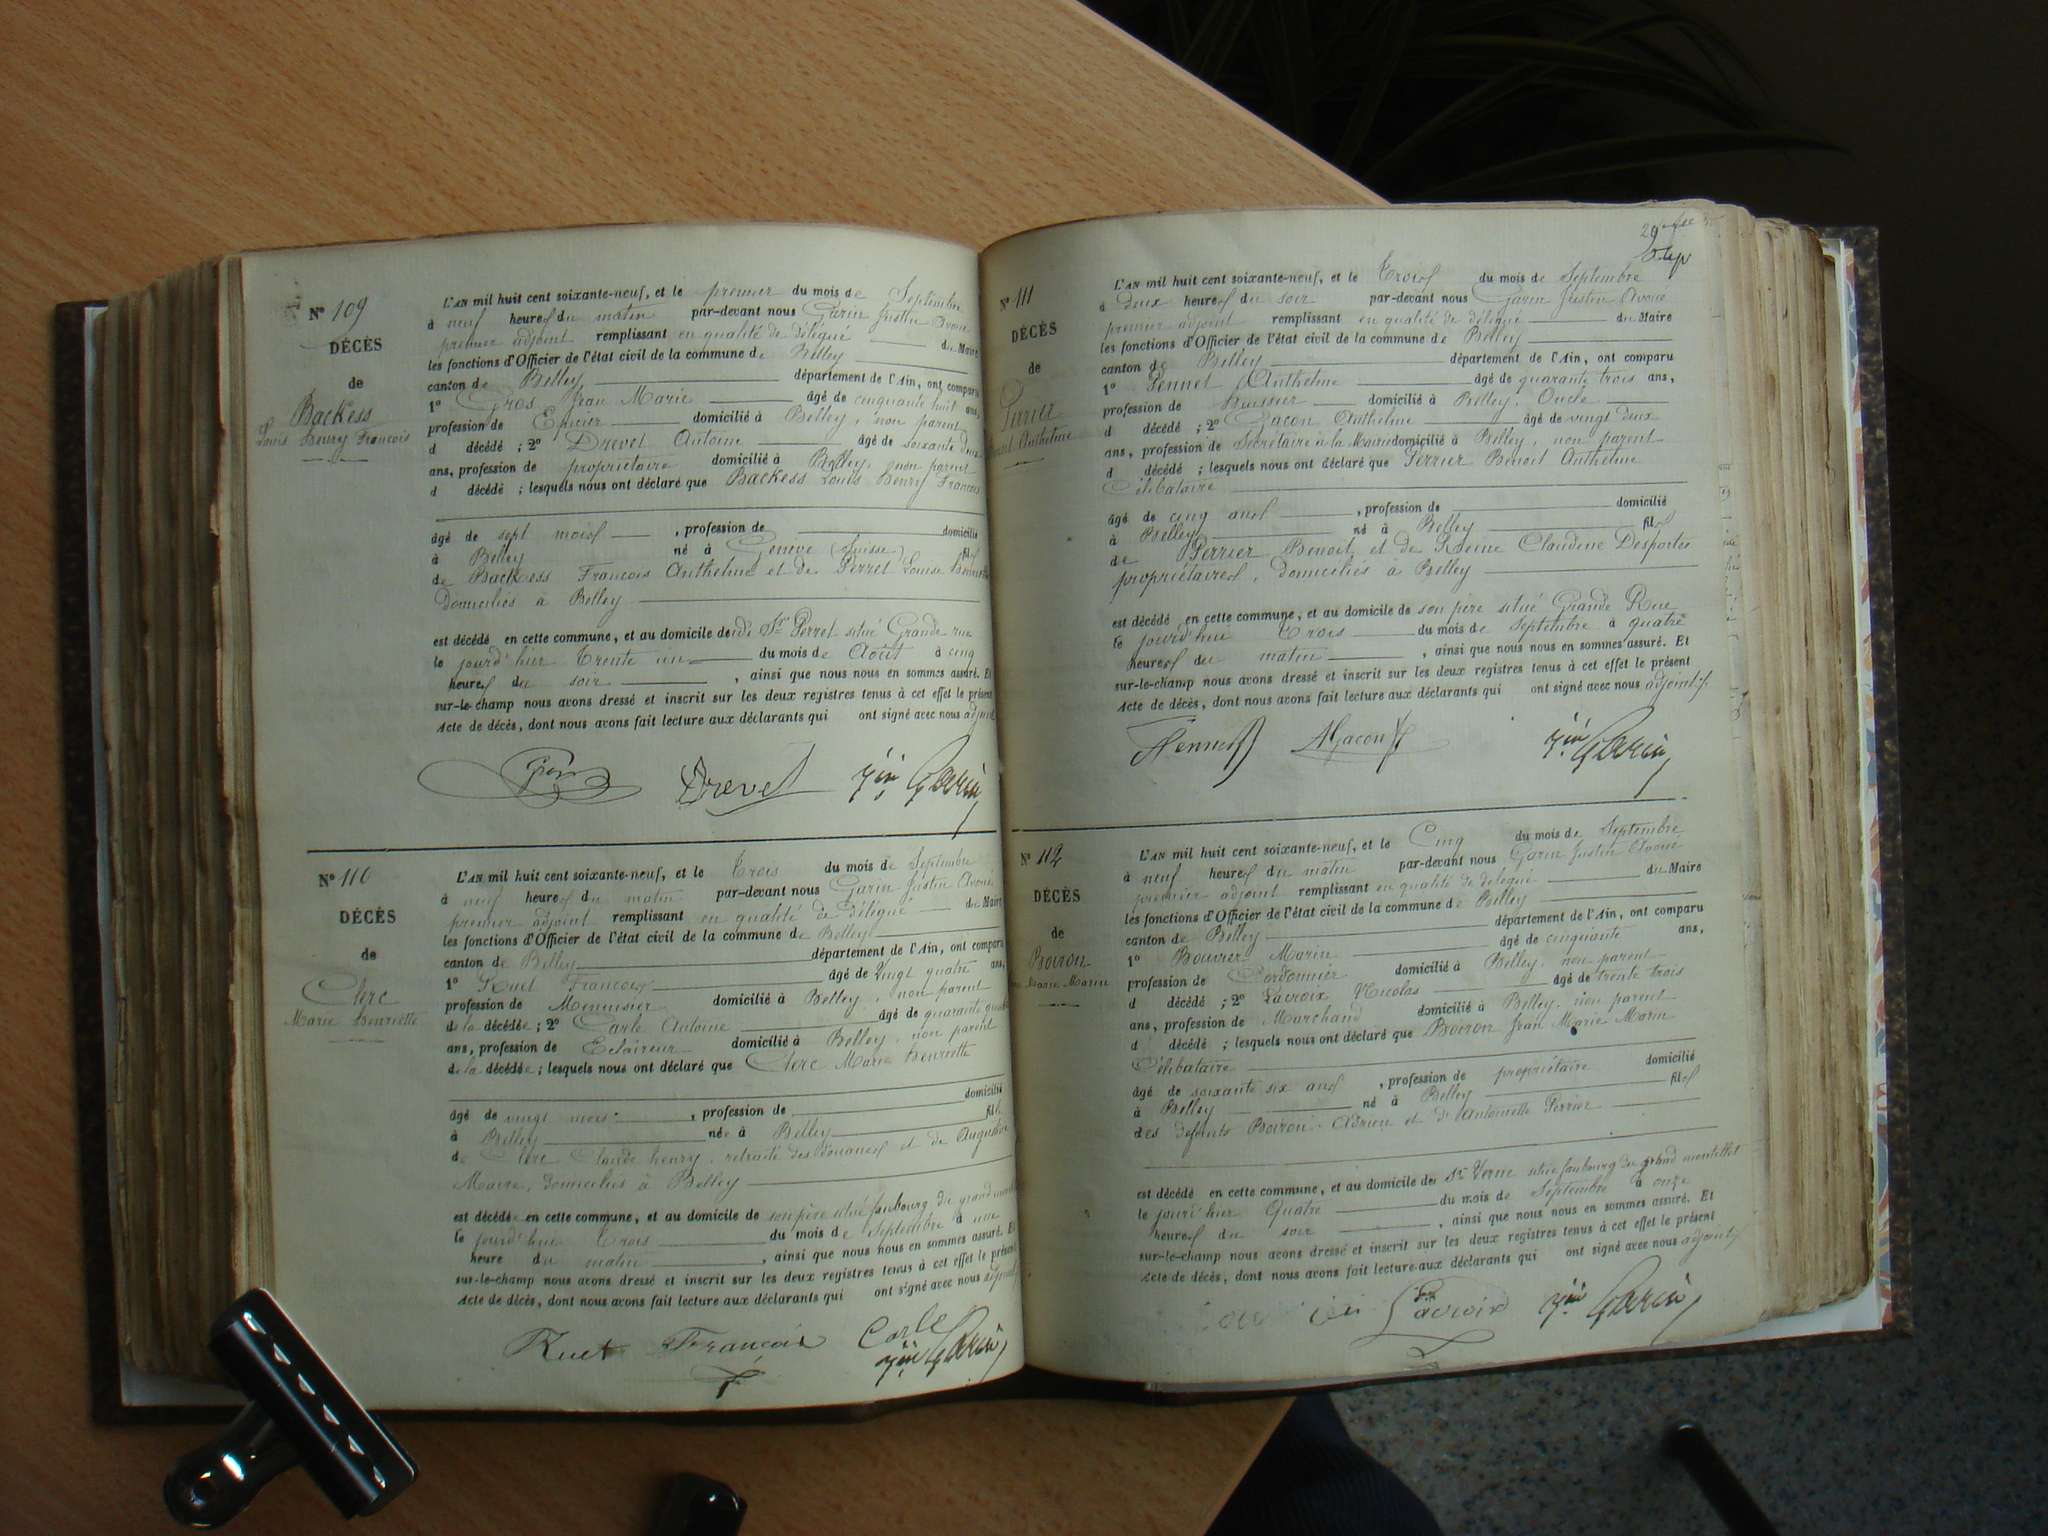 Nº 109
DÉCÈS
de
Backess
Louis Henry François
L'AN mil huit cent soixante-neuf, et le premier du mois de Septembre
à neuf heures du matin par-devant nous Garin Justin Avoué
premier adjoint remplissant en qualité de délégué du Maire
les fonctions d'Officier de l'état civil de la commune de Belley
canton de Belley département de l'Ain, ont comparu
1º Gros Jean Marie âgé de cinquante huit ans,
profession de Epicier domicilié à Belley, non parent
d décédé ; 2º Drevet Antoine âgé de soixante deux
ans, profession de propriétaire domicilié à Belley, non parent
d décédé ; lesquels nous ont déclaré que Backess Louis Henry François
âgé de sept mois , profession de domicilié
à Belley né à Genève (Suisse) fils
de Backess François Anthelme et de Perret Louise
Domiciliés à Belley
est décédé en cette commune, et au domicile de Sr Perret situé Grande rue
le jourd'hier Trente un du mois de Août à cinq
heures du soir , ainsi que nous nous en sommes assuré. Et
sur-le-champ nous avons dressé et inscrit sur les deux registres tenus à cet effet le présent
Acte de décès, dont nous avons fait lecture aux déclarants qui ont signé avec nous adjoint
Gros Drevet Jin Garin
Nº 110
DÉCÈS
de
Clerc
Marie Henriette
L'AN mil huit cent soixante-neuf, et le Trois du mois de Septembre
à neuf heures du matin par-devant nous Garin Justin Avoué
premier adjoint remplissant en qualité de délégué du Maire
les fonctions d'Officier de l'état civil de la commune de Belley
canton de Belley département de l'Ain, ont comparu
1º Ruet François âgé de Vingt quatre ans,
profession de Menuisier domicilié à Belley, non parent
de la décédée ; 2º Carle Antoine âgé de quarante quatre
ans, profession de Eclaireur domicilié à Belley, non parent
de la décédée ; lesquels nous ont déclaré que Clerc Marie Henriette
âgé de vingt mois , profession de domicilié
à Belley née à Belley fille
de Clerc Claude henry, retraité des douanes et de Augustine
Marie, domiciliés à Belley
est décédée en cette commune, et au domicile de son père situé faubourg du grand
le jourd'hui Trois du mois de Septembre à une
heure du matin , ainsi que nous nous en sommes assuré. Et
sur-le-champ nous avons dressé et inscrit sur les deux registres tenus à cet effet le présent
Acte de décès, dont nous avons fait lecture aux déclarants qui ont signé avec nous adjoint
Ruet François Carle
Jin Garin
29
Nº 111
DÉCÈS
de
Perrier
Benoit Anthelme
L'AN mil huit cent soixante-neuf, et le Trois du mois de Septembre
à deux heures du soir par-devant nous Garin Justin Avoué
premier adjoint remplissant en qualité de délégué du Maire
les fonctions d'Officier de l'état civil de la commune de Belley
canton de Belley département de l'Ain, ont comparu
1º Anthelme âgé de quarante trois ans,
profession de huissier domicilié à Belley. Oncle
d décédé ; 2º Gacon Anthelme âgé de vingt deux
ans, profession de Secrétaire à la Mairie domicilié à Belley, non parent
d décédé ; lesquels nous ont déclaré que Perrier Benoit Anthelme
Célibataire
âgé de cinq ans , profession de domicilié
à Belley né à Belley fils
de Perrier Benoit et de Reine Claudene Desportes
propriétaires, domiciliés à Belley
est décédé en cette commune, et au domicile de son père situé Grande Rue
le jourd'hui Trois du mois de Septembre à quatre
heures du matin , ainsi que nous nous en sommes assuré. Et
sur-le-champ nous avons dressé et inscrit sur les deux registres tenus à cet effet le présent
Acte de décès, dont nous avons fait lecture aux déclarants qui ont signé avec nous adjoint
AGacon Jin Garin
Nº 112
DÉCÈS
de
Boiron
Jean Marie Marin
L'AN mil huit cent soixante-neuf, et le Cinq du mois de Septembre
à neuf heures du matin par-devant nous Garin Justin Avoué
premier adjoint remplissant en qualité de délégué du Maire
les fonctions d'Officier de l'état civil de la commune de Belley
canton de Belley département de l'Ain, ont comparu
1º Bouvier Marin âgé de cinquante ans,
profession de Cordonnier domicilié à Belley, non parent
d décédé ; 2º Lacroix Nicolas âgé de trente trois
ans, profession de Marchand domicilié à Belley, non parent
d décédé ; lesquels nous ont déclaré que Boiron Jean Marie Marin
Célibataire
âgé de soixante six ans , profession de propriétaire domicilié
à Belley né à Belley fils
des défunts Boiron Adrien et d'Antoinette Perrier
est décédé en cette commune, et au domicile de Sr Verne situé faubourg du grand
le jourd'hier Quatre du mois de Septembre à onze
heures du soir , ainsi que nous nous en sommes assuré. Et
sur-le-champ nous avons dressé et inscrit sur les deux registres tenus à cet effet le présent
Acte de décès, dont nous avons fait lecture aux déclarants qui ont signé avec nous adjoint
Lacroix Jin Garin